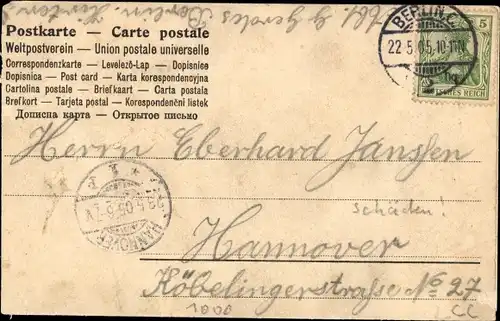 Postkarte — Carte postale
Weltpostverein — Union postale universelle
Correspondenzkarte — Levelező-Lap — Dopisnice
Dopisnica — Post card — Karta korespondencyjna
Cartolina postale — Briefkaart — Carta postala
Brefkort — Tarjeta postal — Korespondenční listek
Дописна карта — Открытое письмо
BERLIN.C.
22.5.05.10-11N.
5
DEUTSCHES REICH
Herrn Eberhard Janssen
schäden!
HANNOVER
Hannover
Köbelingerstraße No 27
1000
CC